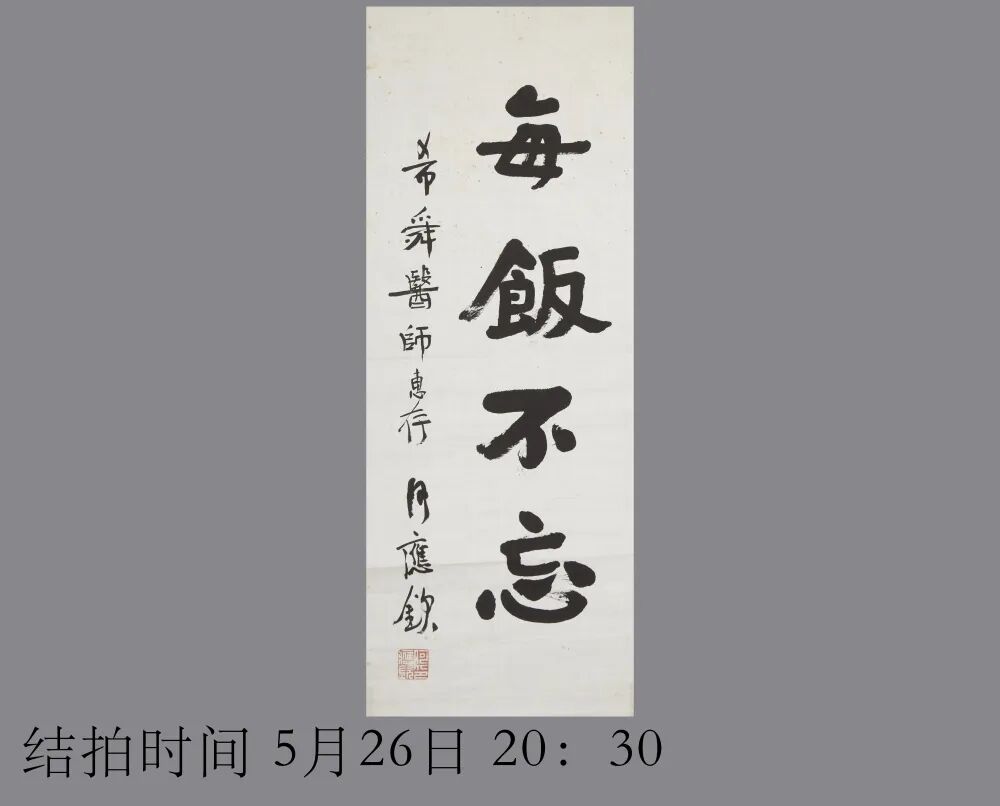 每飯不忘
希舜醫師惠存 何應欽
结拍时间 5月26日 20：30